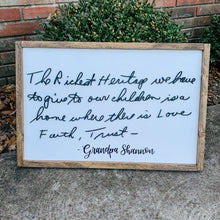 The Richest Heritage we have
to give to our children is a
home where there is Love
Faith, Trust -
- Grandpa Shannon